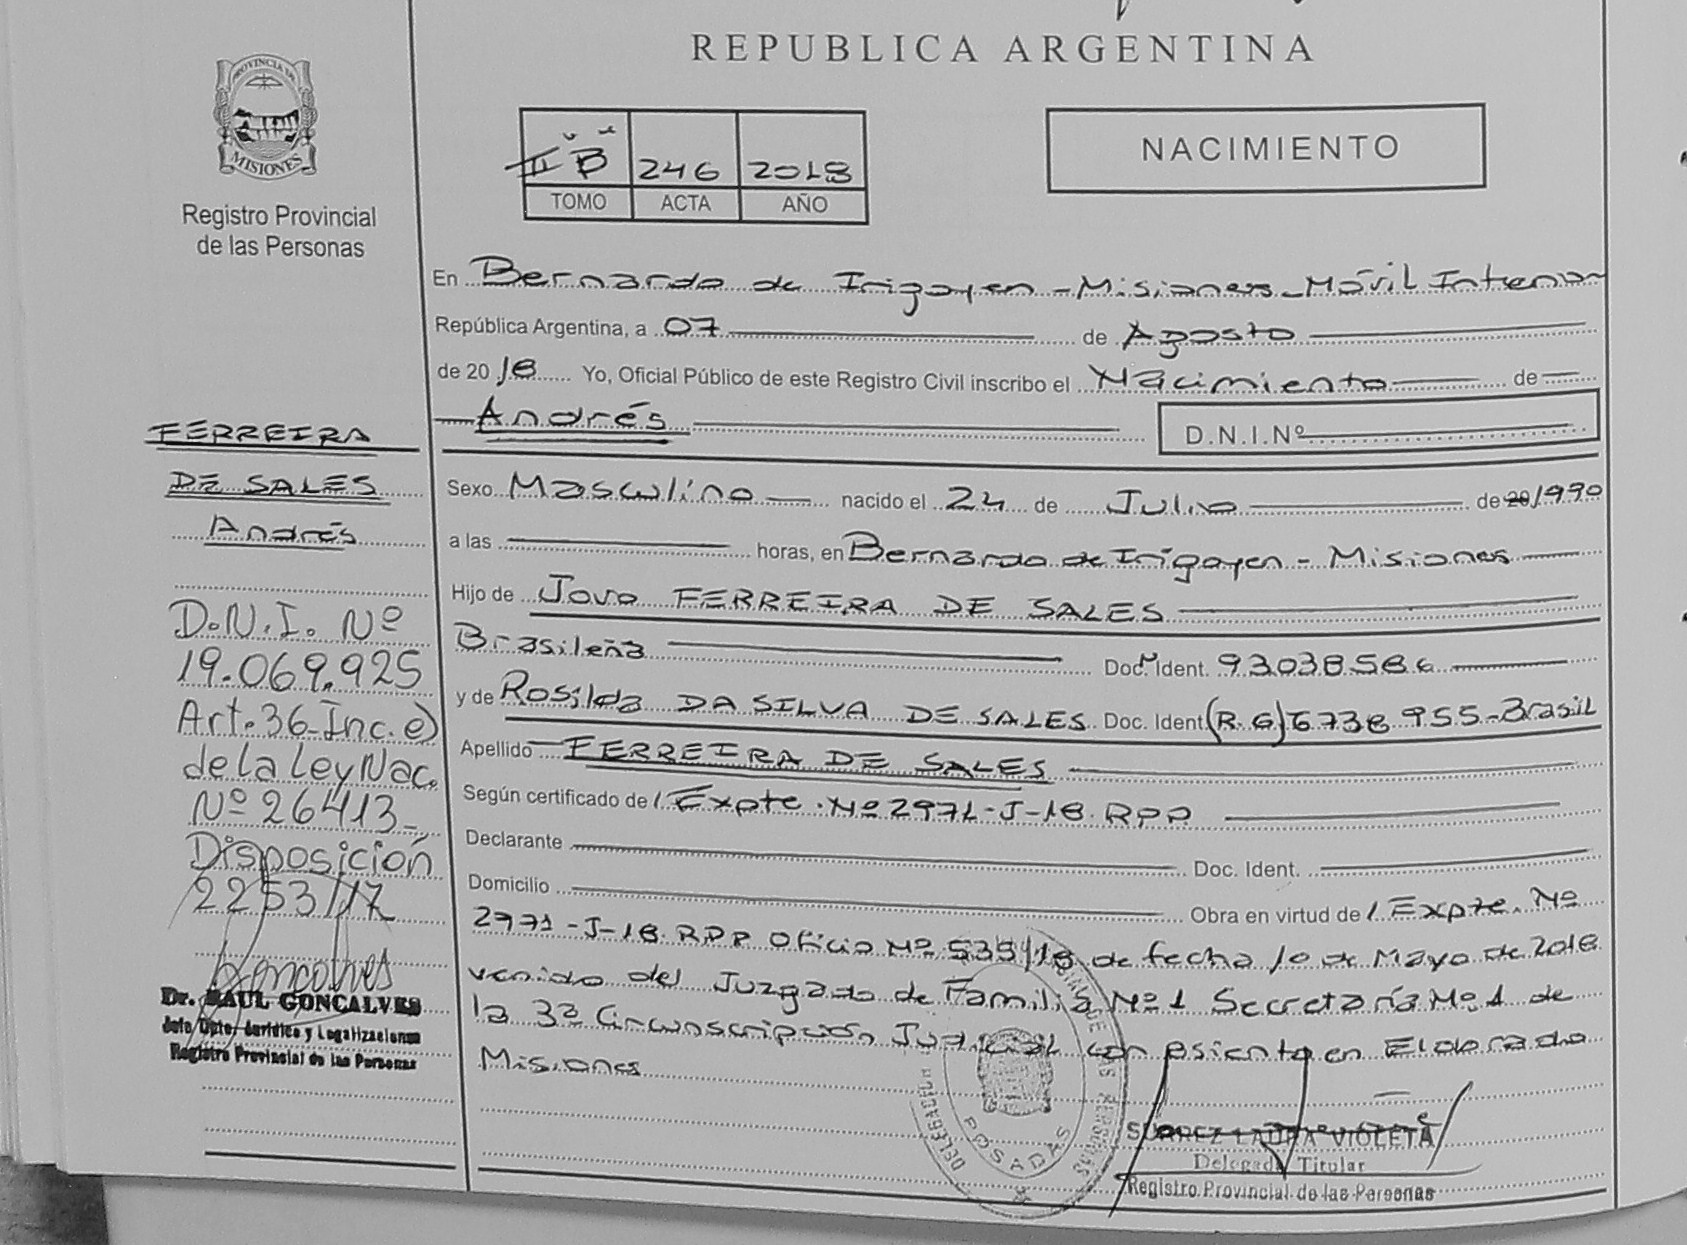 PROVINCIA DE
MISIONES
Registro Provincial
de las Personas
FERREIRA
DE SALES
Andrés
D.N.I. Nº
19.069.925
Art. 36 Inc. e)
de la Ley Nac.
Nº 26413-
Disposición
2253/17
Goncalves
Dr. RAUL GONCALVES
Jefe Dpto. Jurídica y Legalizaciones
Registro Provincial de las Personas
REPUBLICA ARGENTINA
NACIMIENTO
B 246 2018
TOMO ACTA AÑO
En Bernardo de Irigoyen - Misiones - Móvil Interior
República Argentina, a 07 de Agosto
de 2018 Yo, Oficial Público de este Registro Civil inscribo el Nacimiento de
Andrés D.N.I.Nº
Sexo Masculino nacido el 24 de Julio de 20 1990
a las horas, en Bernardo de Irigoyen - Misiones
Hijo de Jovo FERREIRA DE SALES
Brasileña Doc. Ident. 93038586
y de Rosilda DA SILVA DE SALES Doc. Ident. (R.G) 6738 955-Brasil
Apellido FERREIRA DE SALES
Según certificado de Expte. Nº 2971-J-18. RPP
Declarante Doc. Ident.
Domicilio Obra en virtud de Expte. Nº
2971-J-18. RPP Oficio Nº 535/18 de fecha 10 de Mayo de 2018
venido del Juzgado de Familia Nº 1 Secretaría Nº 1 de
la 3ª Circunscripción Judicial con asiento en Eldorado
Misiones
POSADAS
SUAREZ LAURA VIOLETA
Delegada Titular
Registro Provincial de las Personas